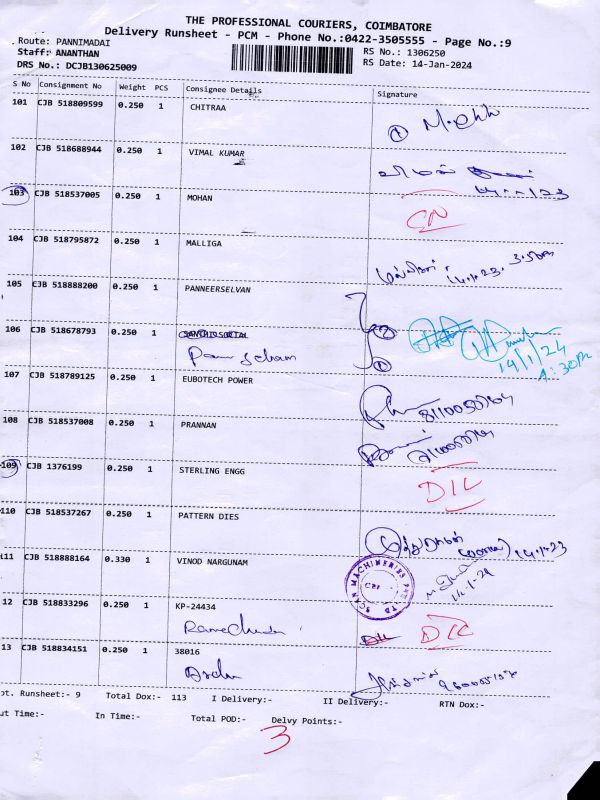 THE PROFESSIONAL COURIERS, COIMBATORE
Delivery Runsheet - PCM - Phone No.:0422-3505555 - Page No.:9
Route: PANNIMADAI
Staff: ANANTHAN RS No.: 1306250
DRS No.: DCJB130625009 RS Date: 14-Jan-2024
S No Consignment No Weight PCS Consignee Details Signature
101 CJB 518809599 0.250 1 CHITRAA
102 CJB 518688944 0.250 1 VIMAL KUMAR
விமல்
103 CJB 518537005 0.250 1 MOHAN
CN
104 CJB 518795872 0.250 1 MALLIGA
14.1.23 3:50pm
105 CJB 518888200 0.250 1 PANNEERSELVAN
106 CJB 518678793 0.250 1
14/1/24
4:30PM
107 CJB 518789125 0.250 1 EUBOTECH POWER
108 CJB 518537008 0.250 1 PRANNAN
109 CJB 1376199 0.250 1 STERLING ENGG
DIL
110 CJB 518537267 0.250 1 PATTERN DIES
14.1.23
111 CJB 518888164 0.330 1 VINOD NARGUNAM
SCAN MACHINERIES PVT LTD
12 CJB 518833296 0.250 1 KP-24434
DIL DIL
13 CJB 518834151 0.250 1 38016
ot. Runsheet:- 9 Total Dox:- 113 I Delivery:- II Delivery:- RTN Dox:-
ut Time:- In Time:- Total POD:- Delvy Points:-
3